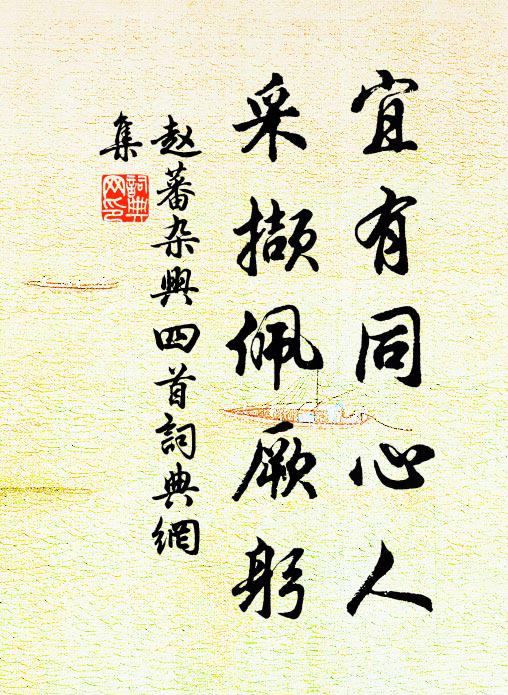 宜有同心人
采撷佩厥躬
赵蕃杂興四首詞典網
集
詞典网印